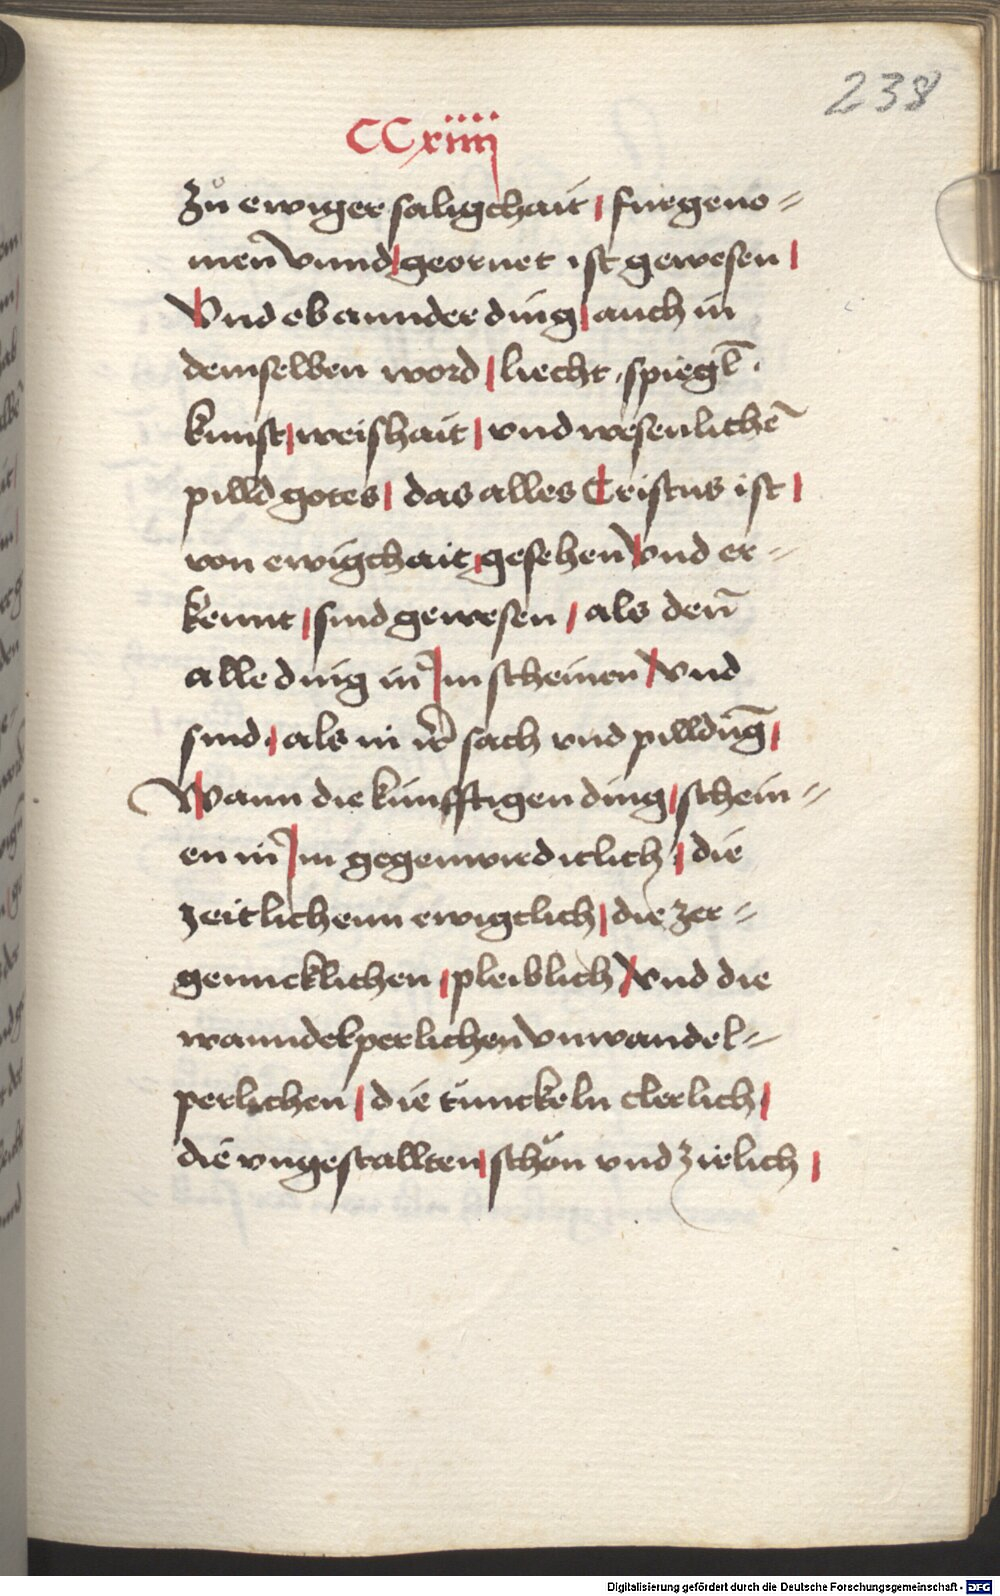 238
CCxiiij
Zů ewiger saligchait | fürgeno=
men̄ vnnd | geornet ist gewesen |
Vnd ob annder ding | auch in
demselben word | liecht, spiegl̄.
kunst | weishait | vnd wesenlichē
pilld gotes | das alles Cristus ist |
von ewigchait | gesehen vnd er=
kennt | sind gewesen | als den̄
alle ding in Im scheinen vnd
sind | als in ir̄ sach vnd pilldūg |
Wann die künfftigen ding | schein=
en in Im gegenwirdiclich | die
zeitlichenn ewigclich | die zer=
genncklichen | pleiblich vnd die
wanndelperlichen vnwandel=
perlichen | die tunckeln clerlich |
die vngestallten | schön vnd zirlich |
Digitalisierung gefördert durch die Deutsche Forschungsgemeinschaft - DFG